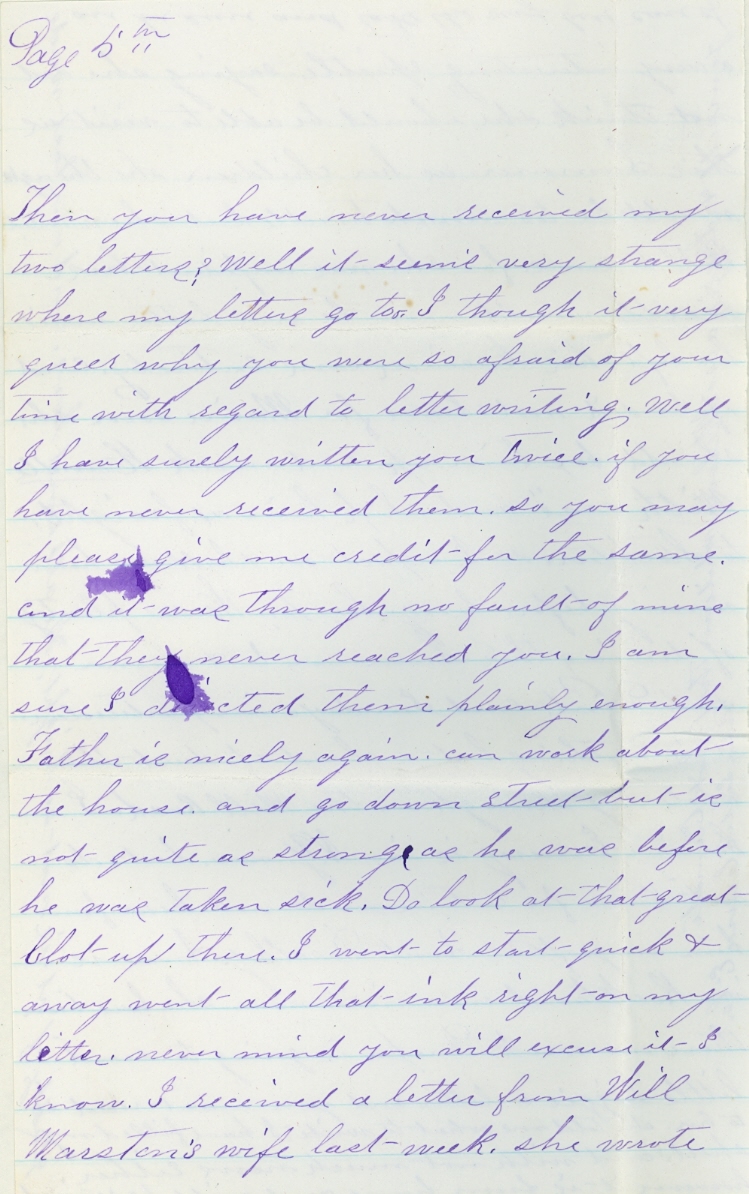 Page 5th
Then you have never received my
two letters? Well it seems very strange
where my letters go too. I though it very
queer why you were so afraid of your
time with regard to letter writing. Well
I have surely written you twice. if you
have never received them. so you may
please give me credit for the same.
and it was through no fault of mine
that they never reached you. I am
sure I directed them plainly enough.
Father is nicely again. can work about
the house. and go down street but is
not quite as strong as he was before
he was taken sick. Do look at that great
blot up there. I went to start quick &
away went all that ink right on my
letter. never mind you will excuse it I
know. I received a letter from Will
Marston's wife last week. she wrote